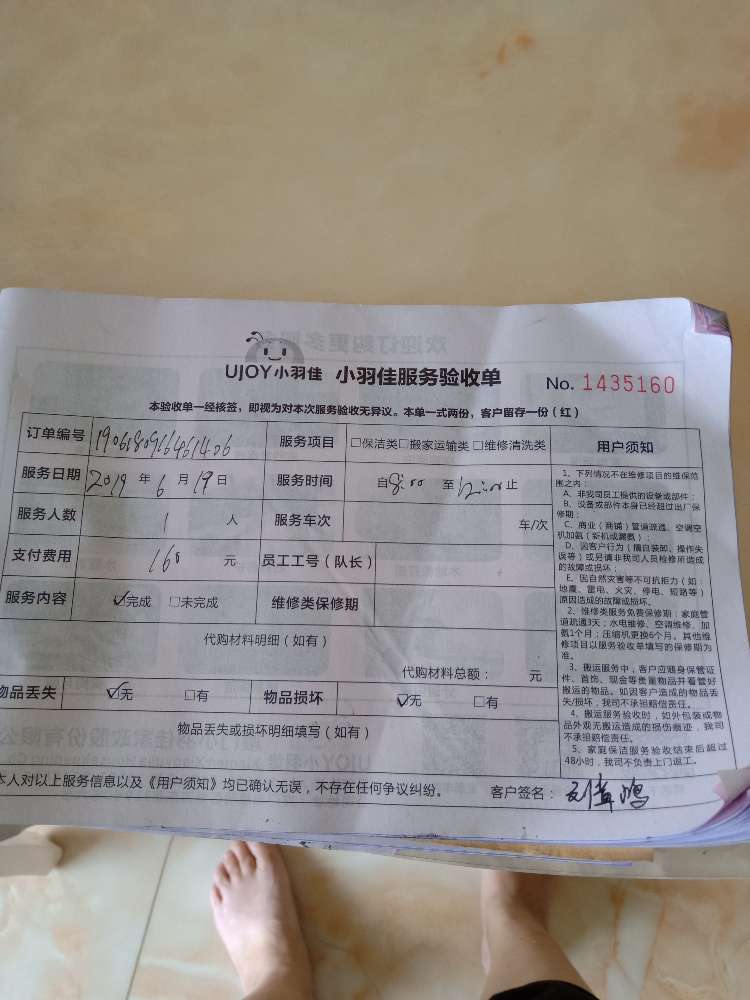 UJOY小羽佳 小羽佳服务验收单 No. 1435160
本验收单一经核签，即视为对本次服务验收无异议。本单一式两份，客户留存一份（红）
订单编号 服务项目 □保洁类□搬家运输类□维修清洗类 用户须知
服务日期 2019 年 6 月 19 日 服务时间 自8:00 至12:00止
服务人数 1 人 服务车次 车/次
支付费用 160 元 员工工号（队长）
服务内容 ☑完成 □未完成 维修类保修期
代购材料明细（如有）
代购材料总额： 元
物品丢失 ☑无 □有 物品损坏 ☑无 □有
物品丢失或损坏明细填写（如有）
本人对以上服务信息以及《用户须知》均已确认无误，不存在任何争议纠纷。 客户签名：
1、下列情况不在维修项目的维保范
围之内：
A、非我司员工提供的设备或部件；
B、设备或部件本身已经超过出厂保
修期；
C、商业（商铺）管道疏通、空调空
机加氨（新机或漏氨）；
D、因客户行为（擅自装卸、操作失
误等）或另请非我司人员检修所造成
的故障或损坏；
E、因自然灾害等不可抗拒力（如：
地震、雷电、火灾、停电、短路等）
原因造成的故障或损坏。
2、维修类服务免费保修期：家庭管
道疏通3天；水电维修、空调维修、加
氨1个月；压缩机更换6个月。其他维
修项目以服务验收单填写的保修期为
准。
3、搬运服务中，客户应随身保管证
件、首饰、现金等贵重物品并看管好
搬运的物品。如因客户造成的物品丢
失/损坏，我司不承担赔偿责任。
4、搬运服务验收时，如外包装或物
品外观无搬运造成的损伤痕迹，我司
不承担赔偿责任。
5、家庭保洁服务验收结束后超过
48小时，我司不负责上门返工。